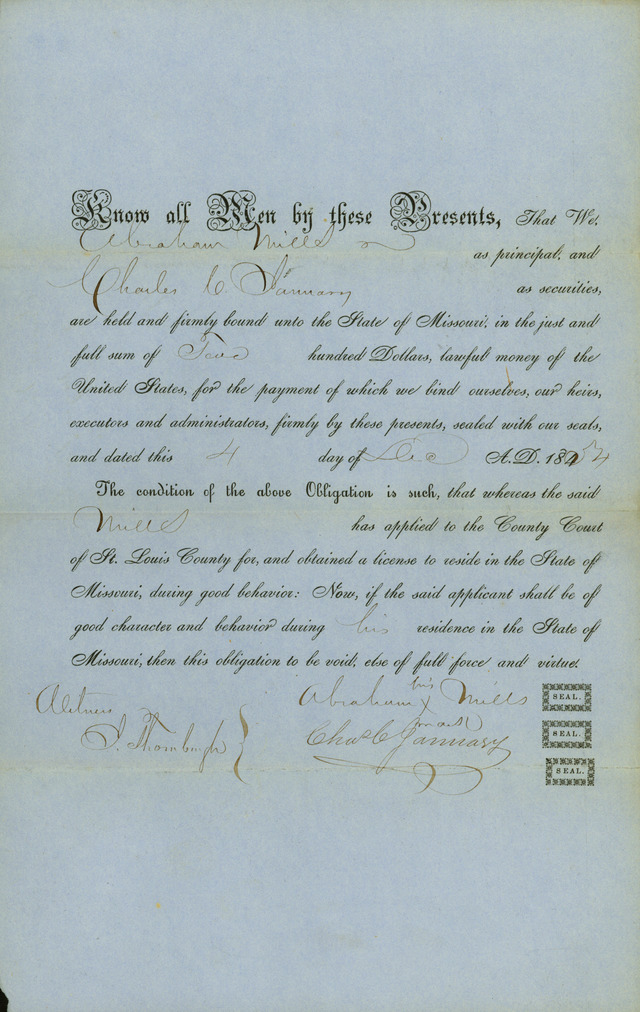 Know all Men by these Presents, That We,
Abraham Mills
as principal, and
Charles C January as securities,
are held and firmly bound unto the State of Missouri, in the just and
full sum of Two hundred Dollars, lawful money of the
United States, for the payment of which we bind ourselves, our heirs,
executors and administrators, firmly by these presents, sealed with our seals,
and dated this 4 day of Dec A.D. 1854
The condition of the above Obligation is such, that whereas the said
Mills has applied to the County Court
of St. Louis County for, and obtained a license to reside in the State of
Missouri, during good behavior: Now, if the said applicant shall be of
good character and behavior during his residence in the State of
Missouri, then this obligation to be void, else of full force and virtue.
Witness
Thornburgh
Abraham his Mills SEAL.
X
mark
Chas C January SEAL.
SEAL.